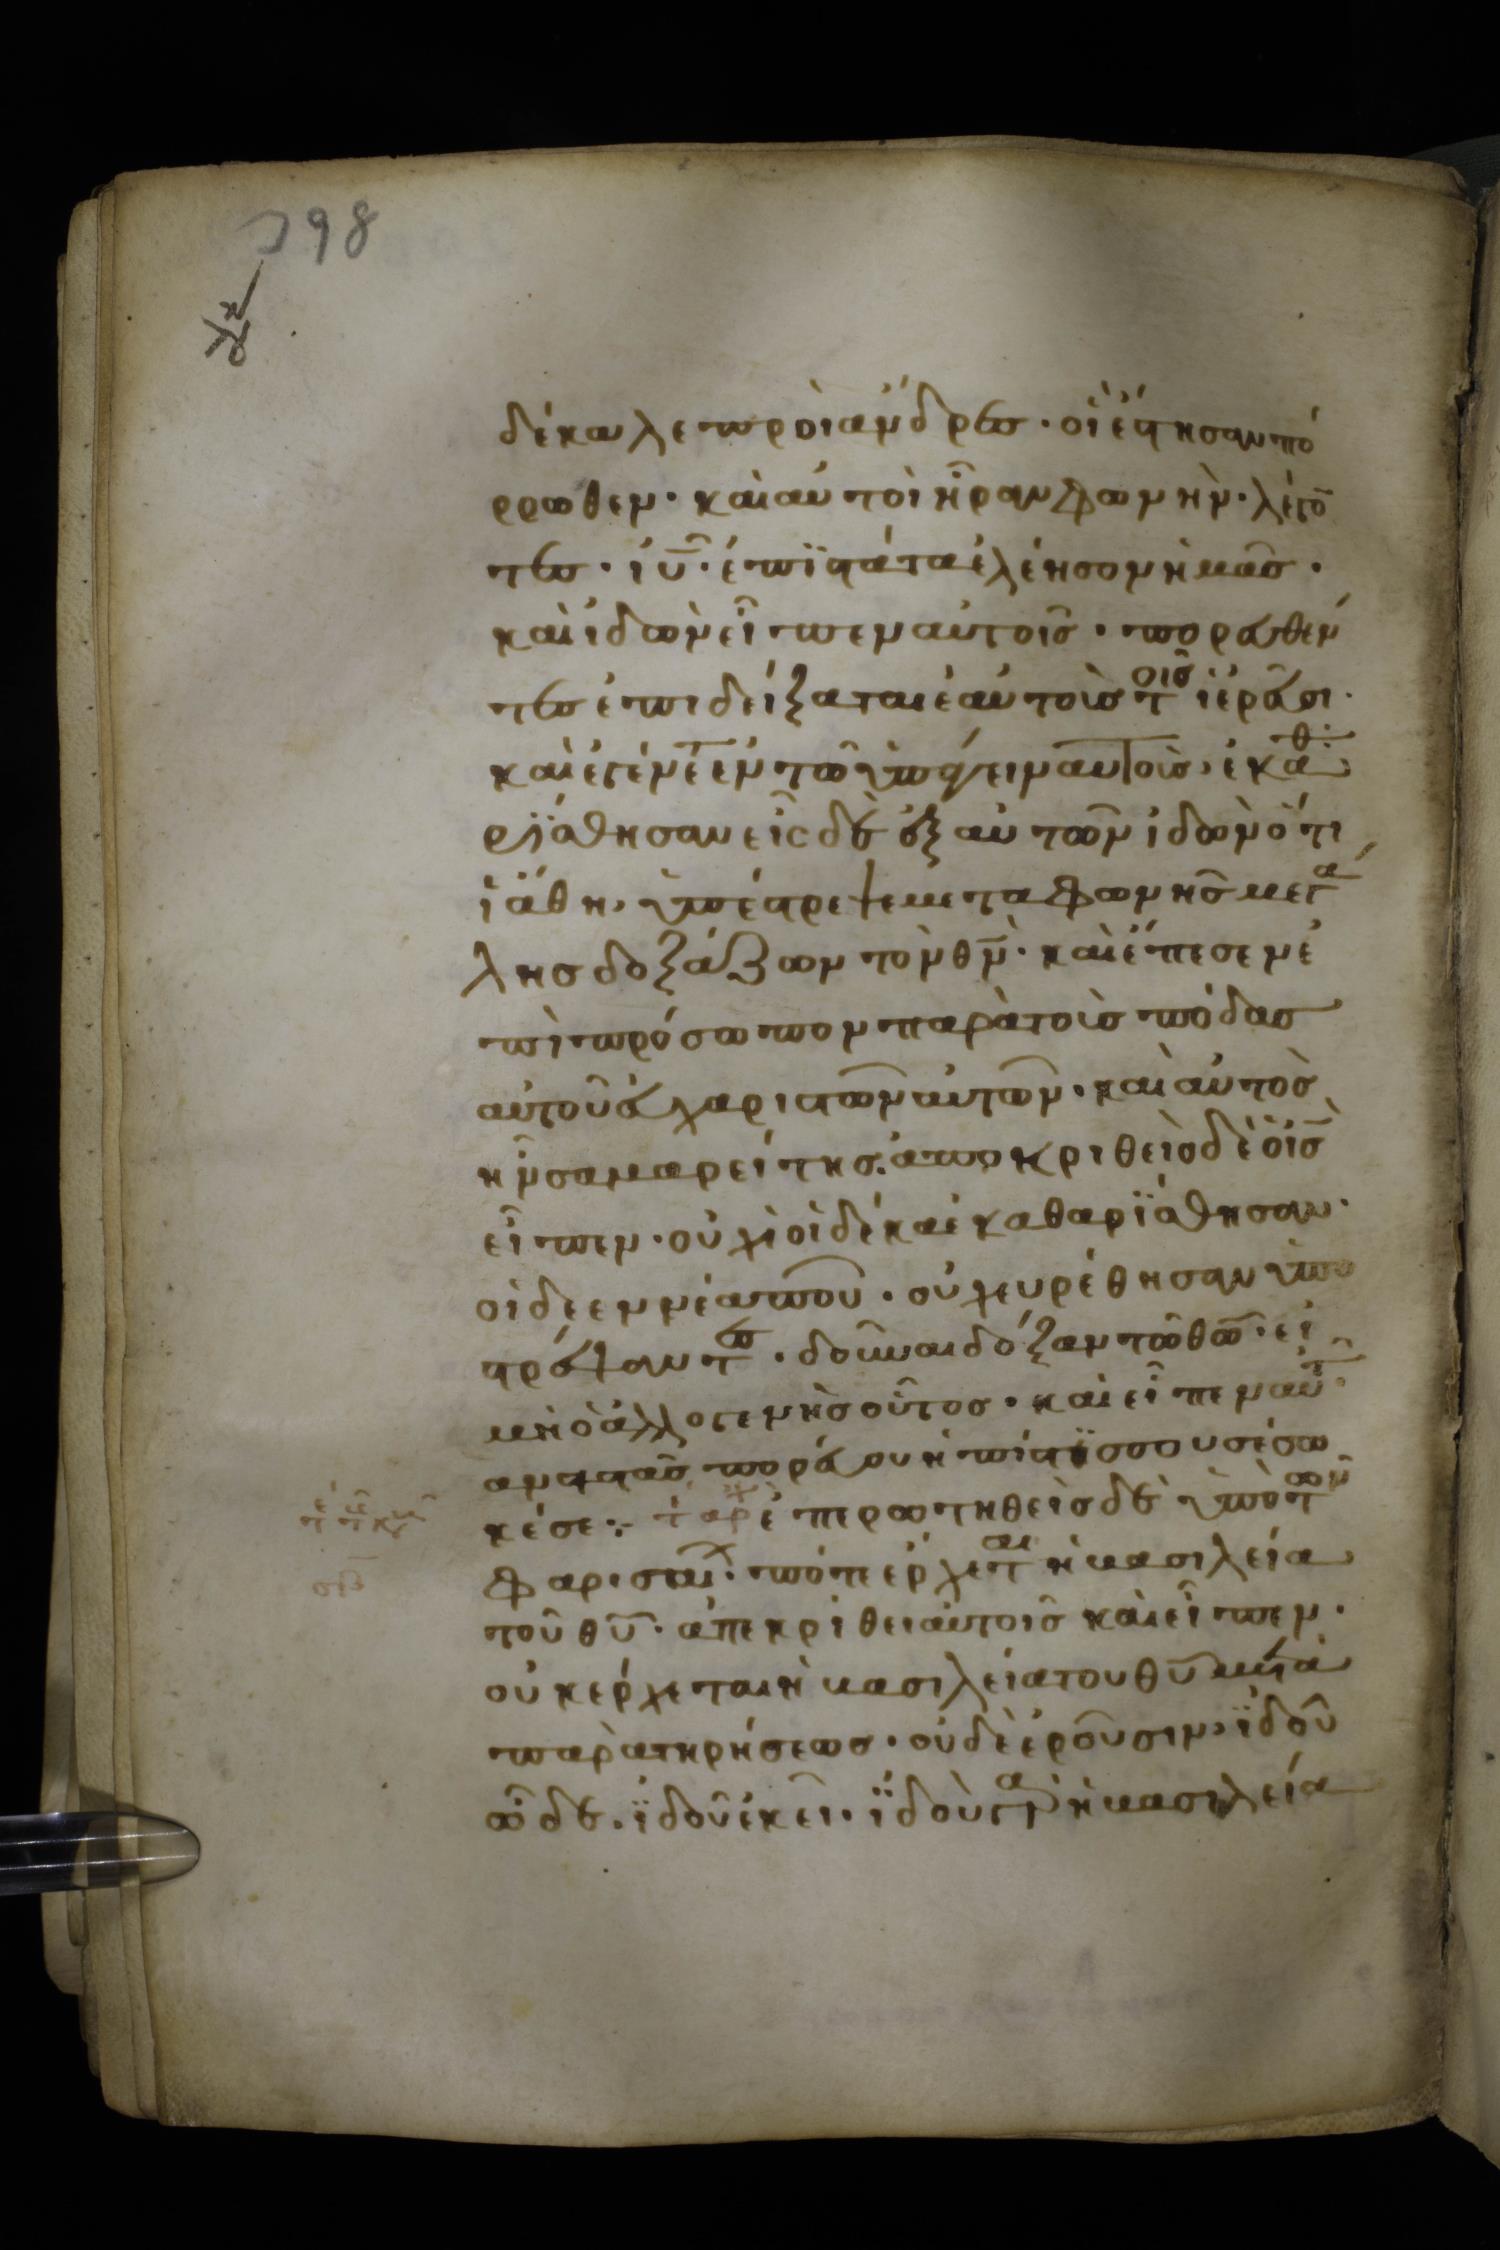 198
δέκα λεπροὶ ἄνδρες · οἳ ἔστησαν πό
ρρωθεν · καὶ αὐτοὶ ἦραν φωνὴν · λέγο
ντες · ιυ̅ · ἐπϊστάτα ἐλέησον ἡμᾶς ·
καὶ ἰδὼν εἶπεν αὐτοῖς · πορευθέν
τες ἐπιδείξαται ἑαυτοὺς τοῖς ϊερεῦσι ·
καὶ ἐγένετο ἐν τῶ ὑπάγειν αὐτοὺς, ἐκαθα
ρϊσθησαν εἷς δὲ ἐξ αὐτῶν ἰδὼν ὅτι
ἰάθη, ὑπέστρεψε μετα φωνῆς μεγά
λης δοξάζων τὸν θν̅ · καὶ ἔπεσεν ἐ
πὶ πρόσωπον παρὰ τοὺς πόδας
αὐτοῦ εὐχαριστῶν αὐτῶν · καὶ αὐτὸς
ἦν σαμαρείτης · ἀποκριθεὶς δὲ ὁ ις̅
εἶπεν · οὐχὶ οἱ δέκα ἐκαθαρϊσθησαν ·
οἱ δε εννέα ποῦ · οὐχ ευρέθησαν ὑπο
στρέψαντες · δοῦναι δόξαν τῶ θω̅ · εἰ
μὴ ὁ ἀλλογενὴς οὗτος · καὶ εἶπεν αὐτῶ ·
αναστὰς πορεύου ἡ πίστϊς σου σέσω
κέσε :· ἐπερωτηθεὶς δὲ ὑπὸ τῶν
φαρισαίων · πότε ἔρχεται ἡ βασιλεία
τοῦ θυ̅ · ἀπεκρίθει αὐτοῖς καὶ εἶπεν ·
οὐκ ἔρχεται ἡ βασιλεία του θυ̅ μετὰ
παρατηρήσεως · οὐδὲ ἐροῦσιν, ϊδοῦ
ὧδε · ϊδοῦ ἐκεῖ · ϊδοὺ γὰρ ἡ βασιλεία